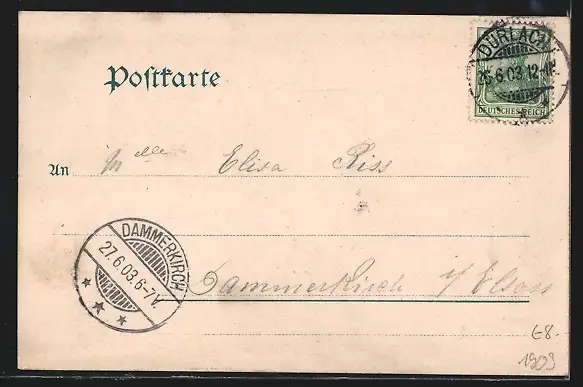 Postkarte
DURLACH
26.6.03.12-1N.
DEUTSCHES REICH
An Mlle Elisa Riss
DAMMERKIRCH
27.6.03.6-7V.
Dammerkirch i/Elsass
€8.-
1903